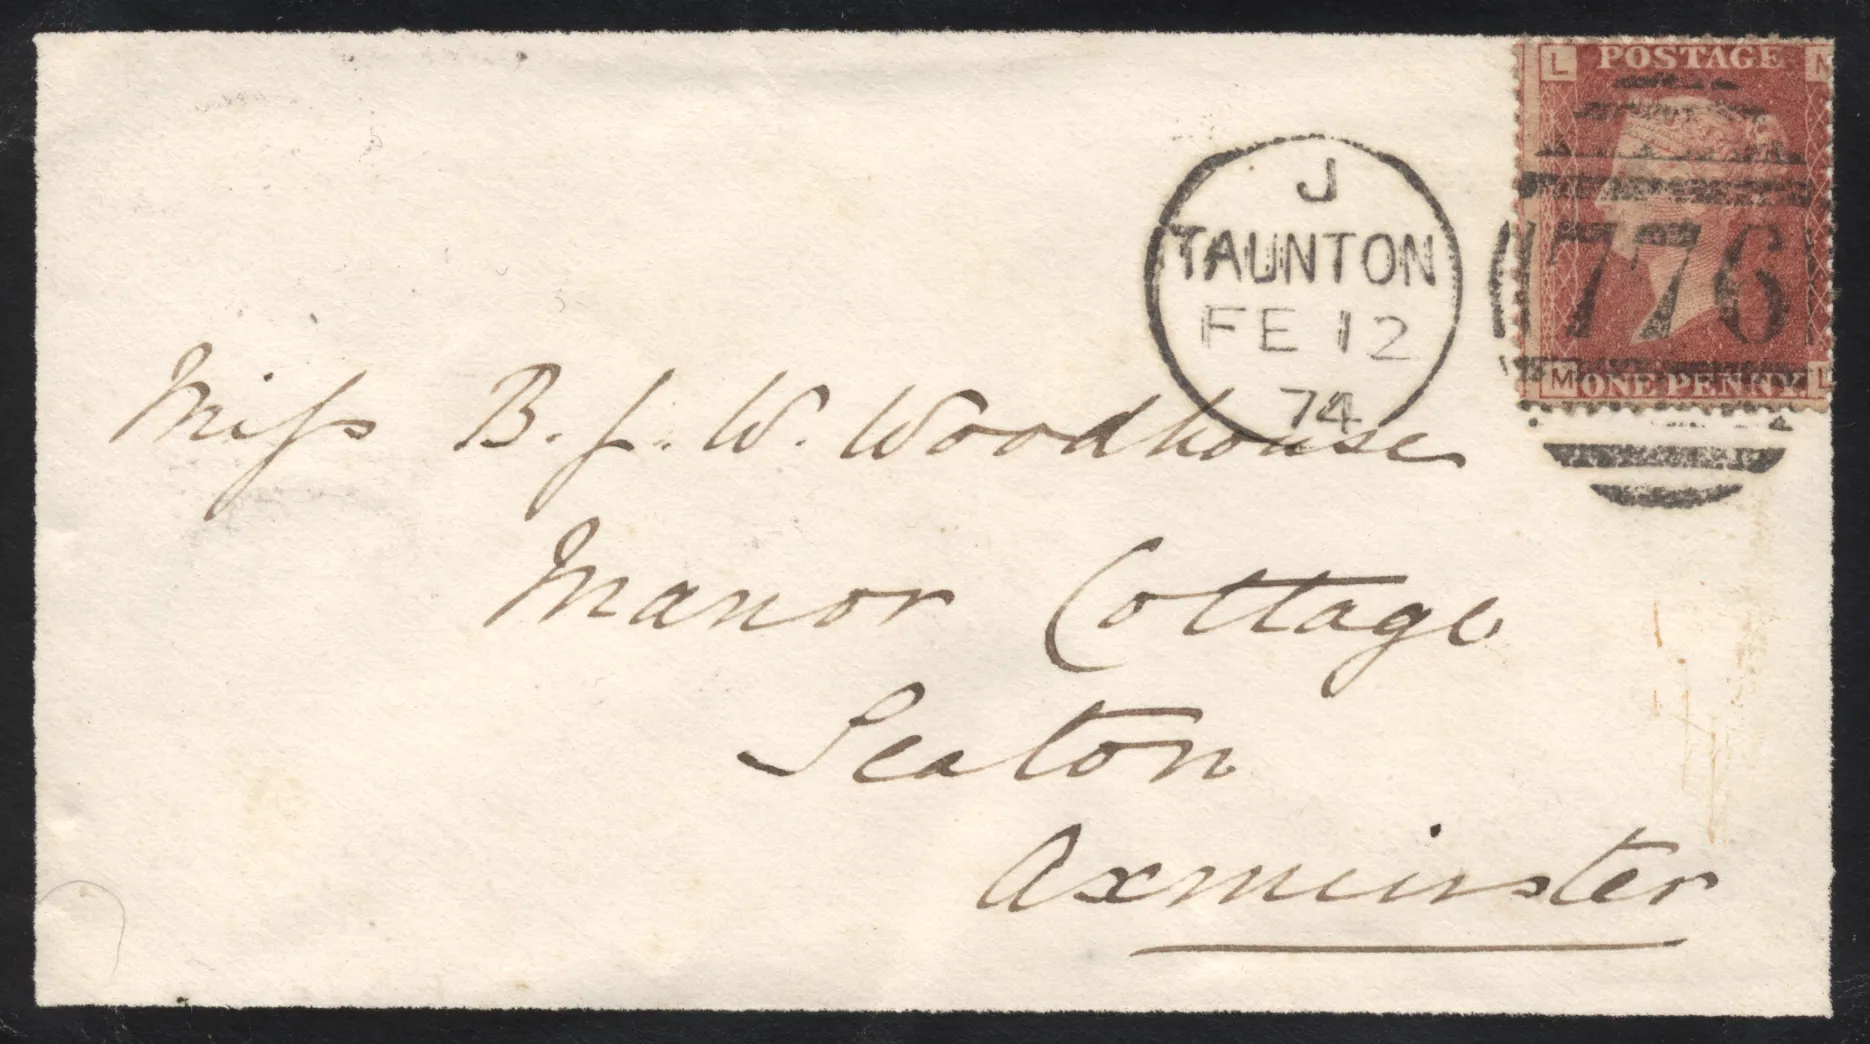 L POSTAGE M
J
TAUNTON
FE 12
74
776
M ONE PENNY. L
Miſs B. J. W. Woodhouse
Manor Cottage
Seaton
Axminster